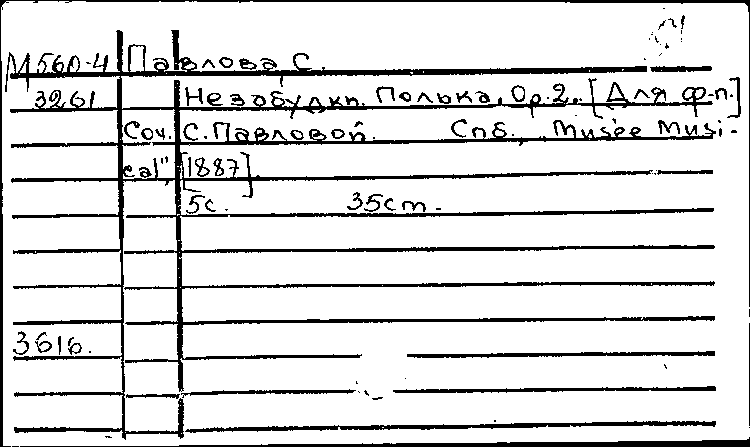 М560-4 Павлова, С.
3261 Незабудки. Полька. Op.2. [Для ф-п.]
Соч. С. Павловой. Спб., „Musée Musi-
cal", [1887].
5с. 35cm.
3616.